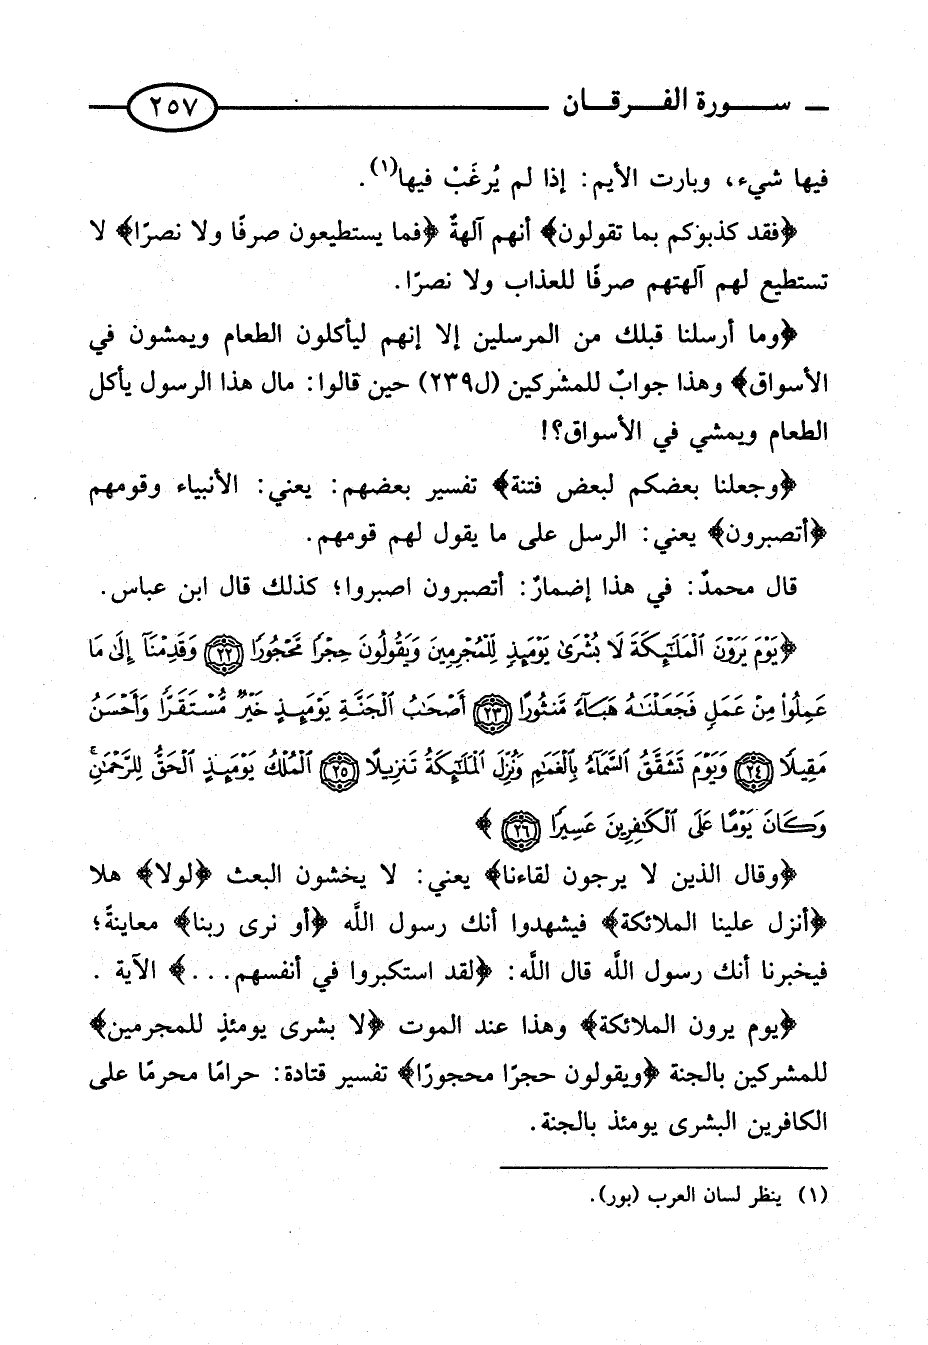 سورة الفرقان ٢٥٧
فيها شيء، وبارت الأيم: إذا لم يُرغَبْ فيها(١).
﴿فقد كذبوكم بما تقولون﴾ أنهم آلهةٌ ﴿فما يستطيعون صرفًا ولا نصرًا﴾ لا
تستطيع لهم آلهتهم صرفًا للعذاب ولا نصرًا.
﴿وما أرسلنا قبلك من المرسلين إلا إنهم ليأكلون الطعام ويمشون في
الأسواق﴾ وهذا جوابٌ للمشركين (ل٢٣٩) حين قالوا: مال هذا الرسول يأكل
الطعام ويمشي في الأسواق؟!
﴿وجعلنا بعضكم لبعض فتنة﴾ تفسير بعضهم: يعني: الأنبياء وقومهم
﴿أتصبرون﴾ يعني: الرسل على ما يقول لهم قومهم.
قال محمدٌ: في هذا إضمارٌ: أتصبرون اصبروا؛ كذلك قال ابن عباس.
﴿يَوْمَ يَرَوْنَ ٱلْمَلَـٰٓئِكَةَ لَا بُشْرَىٰ يَوْمَئِذٍ لِّلْمُجْرِمِينَ وَيَقُولُونَ حِجْرًا مَّحْجُورًا ٢٢ وَقَدِمْنَآ إِلَىٰ مَا
عَمِلُوا۟ مِنْ عَمَلٍ فَجَعَلْنَـٰهُ هَبَآءً مَّنثُورًا ٢٣ أَصْحَـٰبُ ٱلْجَنَّةِ يَوْمَئِذٍ خَيْرٌ مُّسْتَقَرًّا وَأَحْسَنُ
مَقِيلًا ٢٤ وَيَوْمَ تَشَقَّقُ ٱلسَّمَآءُ بِٱلْغَمَـٰمِ وَنُزِّلَ ٱلْمَلَـٰٓئِكَةُ تَنزِيلًا ٢٥ ٱلْمُلْكُ يَوْمَئِذٍ ٱلْحَقُّ لِلرَّحْمَـٰنِ ۚ
وَكَانَ يَوْمًا عَلَى ٱلْكَـٰفِرِينَ عَسِيرًا ٢٦ ﴾
﴿وقال الذين لا يرجون لقاءنا﴾ يعني: لا يخشون البعث ﴿لولا﴾ هلا
﴿أنزل علينا الملائكة﴾ فيشهدوا أنك رسول اللَّه ﴿أو نرى ربنا﴾ معاينةً؛
فيخبرنا أنك رسول اللَّه قال اللَّه: ﴿لقد استكبروا في أنفسهم...﴾ الآية .
﴿يوم يرون الملائكة﴾ وهذا عند الموت ﴿لا بشرى يومئذٍ للمجرمين﴾
للمشركين بالجنة ﴿ويقولون حجرًا محجورًا﴾ تفسير قتادة: حرامًا محرمًا على
الكافرين البشرى يومئذ بالجنة.
(١) ينظر لسان العرب (بور).